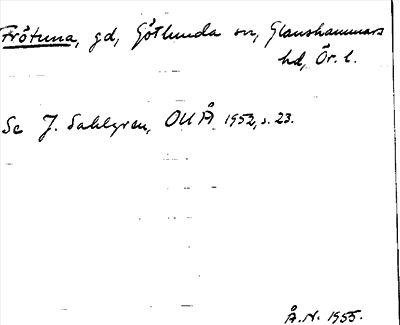 Frötuna, gd, Götlunda sn, Glanshammars
hd, Ör. l.
Se J. Sahlgren, OUÅ 1952, s. 23.
Å.N. 1955.